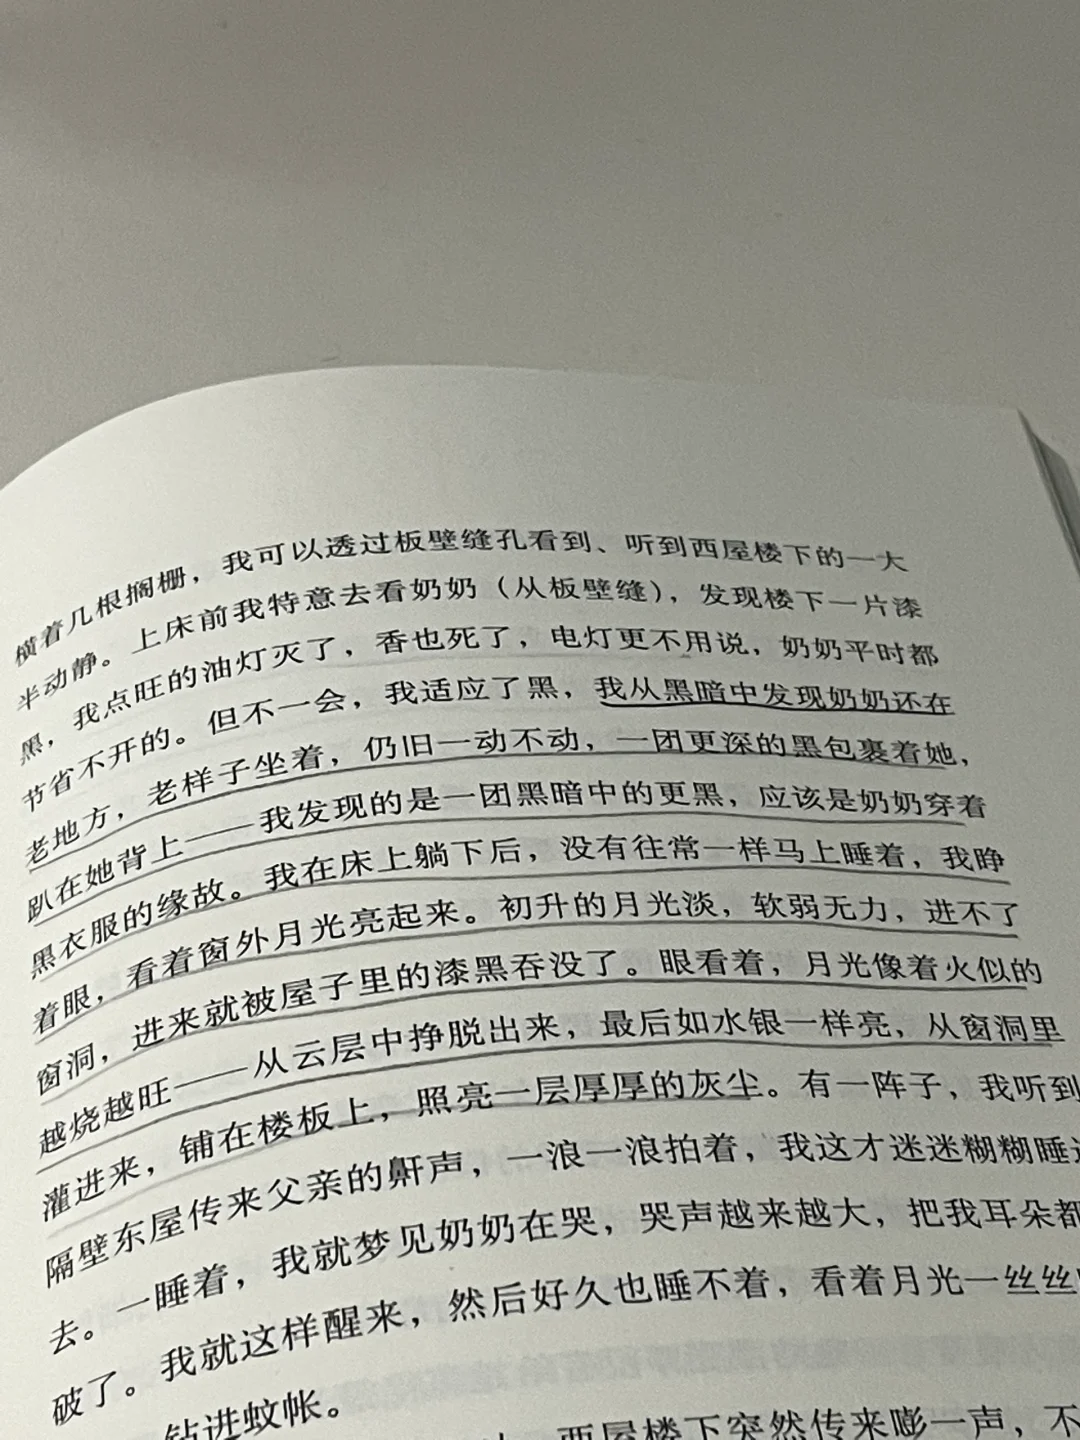 横着几根搁栅，我可以透过板壁缝孔看到、听到西屋楼下的一大
半动静。上床前我特意去看奶奶（从板壁缝），发现楼下一片漆
黑，我点旺的油灯灭了，香也死了，电灯更不用说，奶奶平时都
节省不开的。但不一会，我适应了黑，我从黑暗中发现奶奶还在
老地方，老样子坐着，仍旧一动不动，一团更深的黑包裹着她，
趴在她背上——我发现的是一团黑暗中的更黑，应该是奶奶穿着
黑衣服的缘故。我在床上躺下后，没有往常一样马上睡着，我睁
着眼，看着窗外月光亮起来。初升的月光淡，软弱无力，进不了
窗洞，进来就被屋子里的漆黑吞没了。眼看着，月光像着火似的
越烧越旺——从云层中挣脱出来，最后如水银一样亮，从窗洞里
灌进来，铺在楼板上，照亮一层厚厚的灰尘。有一阵子，我听到
隔壁东屋传来父亲的鼾声，一浪一浪拍着，我这才迷迷糊糊睡
去。一睡着，我就梦见奶奶在哭，哭声越来越大，把我耳朵都
破了。我就这样醒来，然后好久也睡不着，看着月光一丝丝
钻进蚊帐。
西屋楼下突然传来嘭一声，不